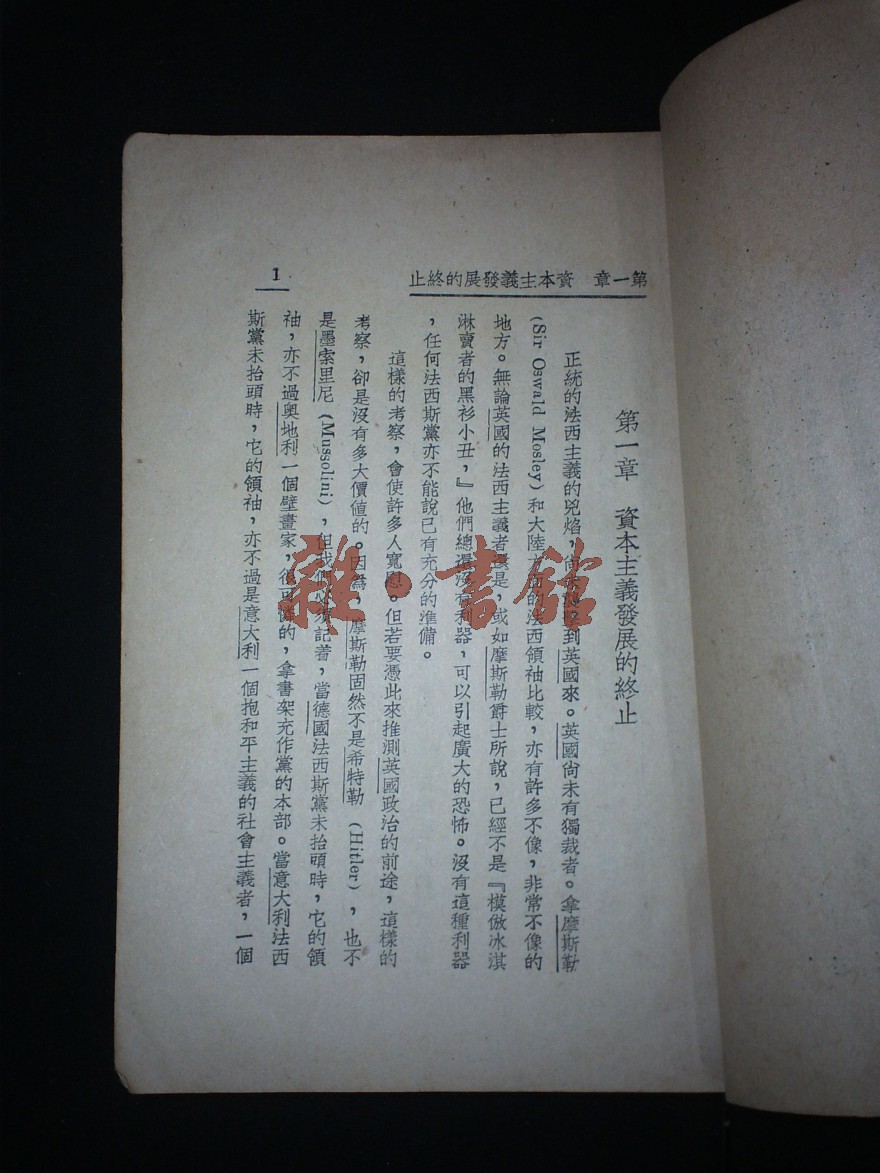 第一章　資本主義發展的終止
1
第一章　資本主義發展的終止
正統的法西主義的兇焰，尚未到英國來。英國尚未有獨裁者。拿摩斯勒
(Sir Oswald Mosley) 和大陸方面的法西領袖比較，亦有許多不像，非常不像的
地方。無論英國的法西主義者還是，或如摩斯勒爵士所說，已經不是『模倣冰淇
淋賣者的黑衫小丑，』他們總還沒有利器，可以引起廣大的恐怖。沒有這種利器
，任何法西斯黨亦不能說已有充分的準備。
這樣的考察，會使許多人寬慰。但若要憑此來推測英國政治的前途，這樣的
考察，卻是沒有多大價値的。因為，摩斯勒固然不是希特勒 (Hitler)，也不
是墨索里尼 (Mussolini)，但我們必須記着，當德國法西斯黨未抬頭時，它的領
袖，亦不過奧地利一個壁畫家，很可憐的，拿書架充作黨的本部。當意大利法西
斯黨未抬頭時，它的領袖，亦不過是意大利一個抱和平主義的社會主義者，一個
雜·書館